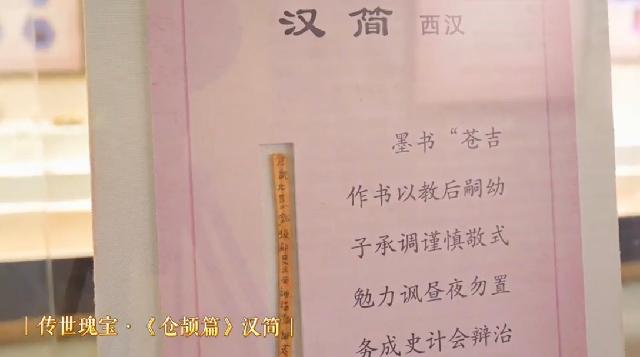 汉简 西汉
墨书“苍吉
作书以教后嗣幼
子承调谨慎敬式
勉力讽昼夜勿置
务成史计会辩治
传世瑰宝·《仓颉篇》汉简